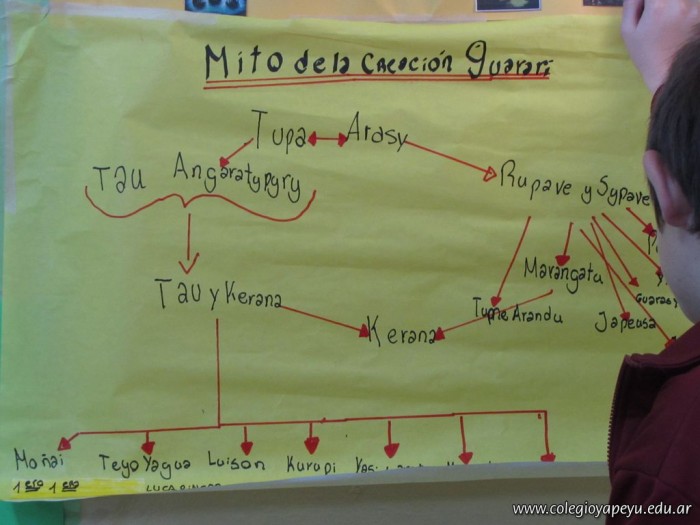 Mito de la Creación Guaraní
Tupa Arasy
Tau Angaratypyry
Rupave y Sypave
Marangatu
Tau y Kerana
Tume Arandu
Guarasy
Japeusa
Kerana
Moñai
Teyo Yagua
Luison
Kurupi
1ero 1era
www.colegioyapeyu.edu.ar